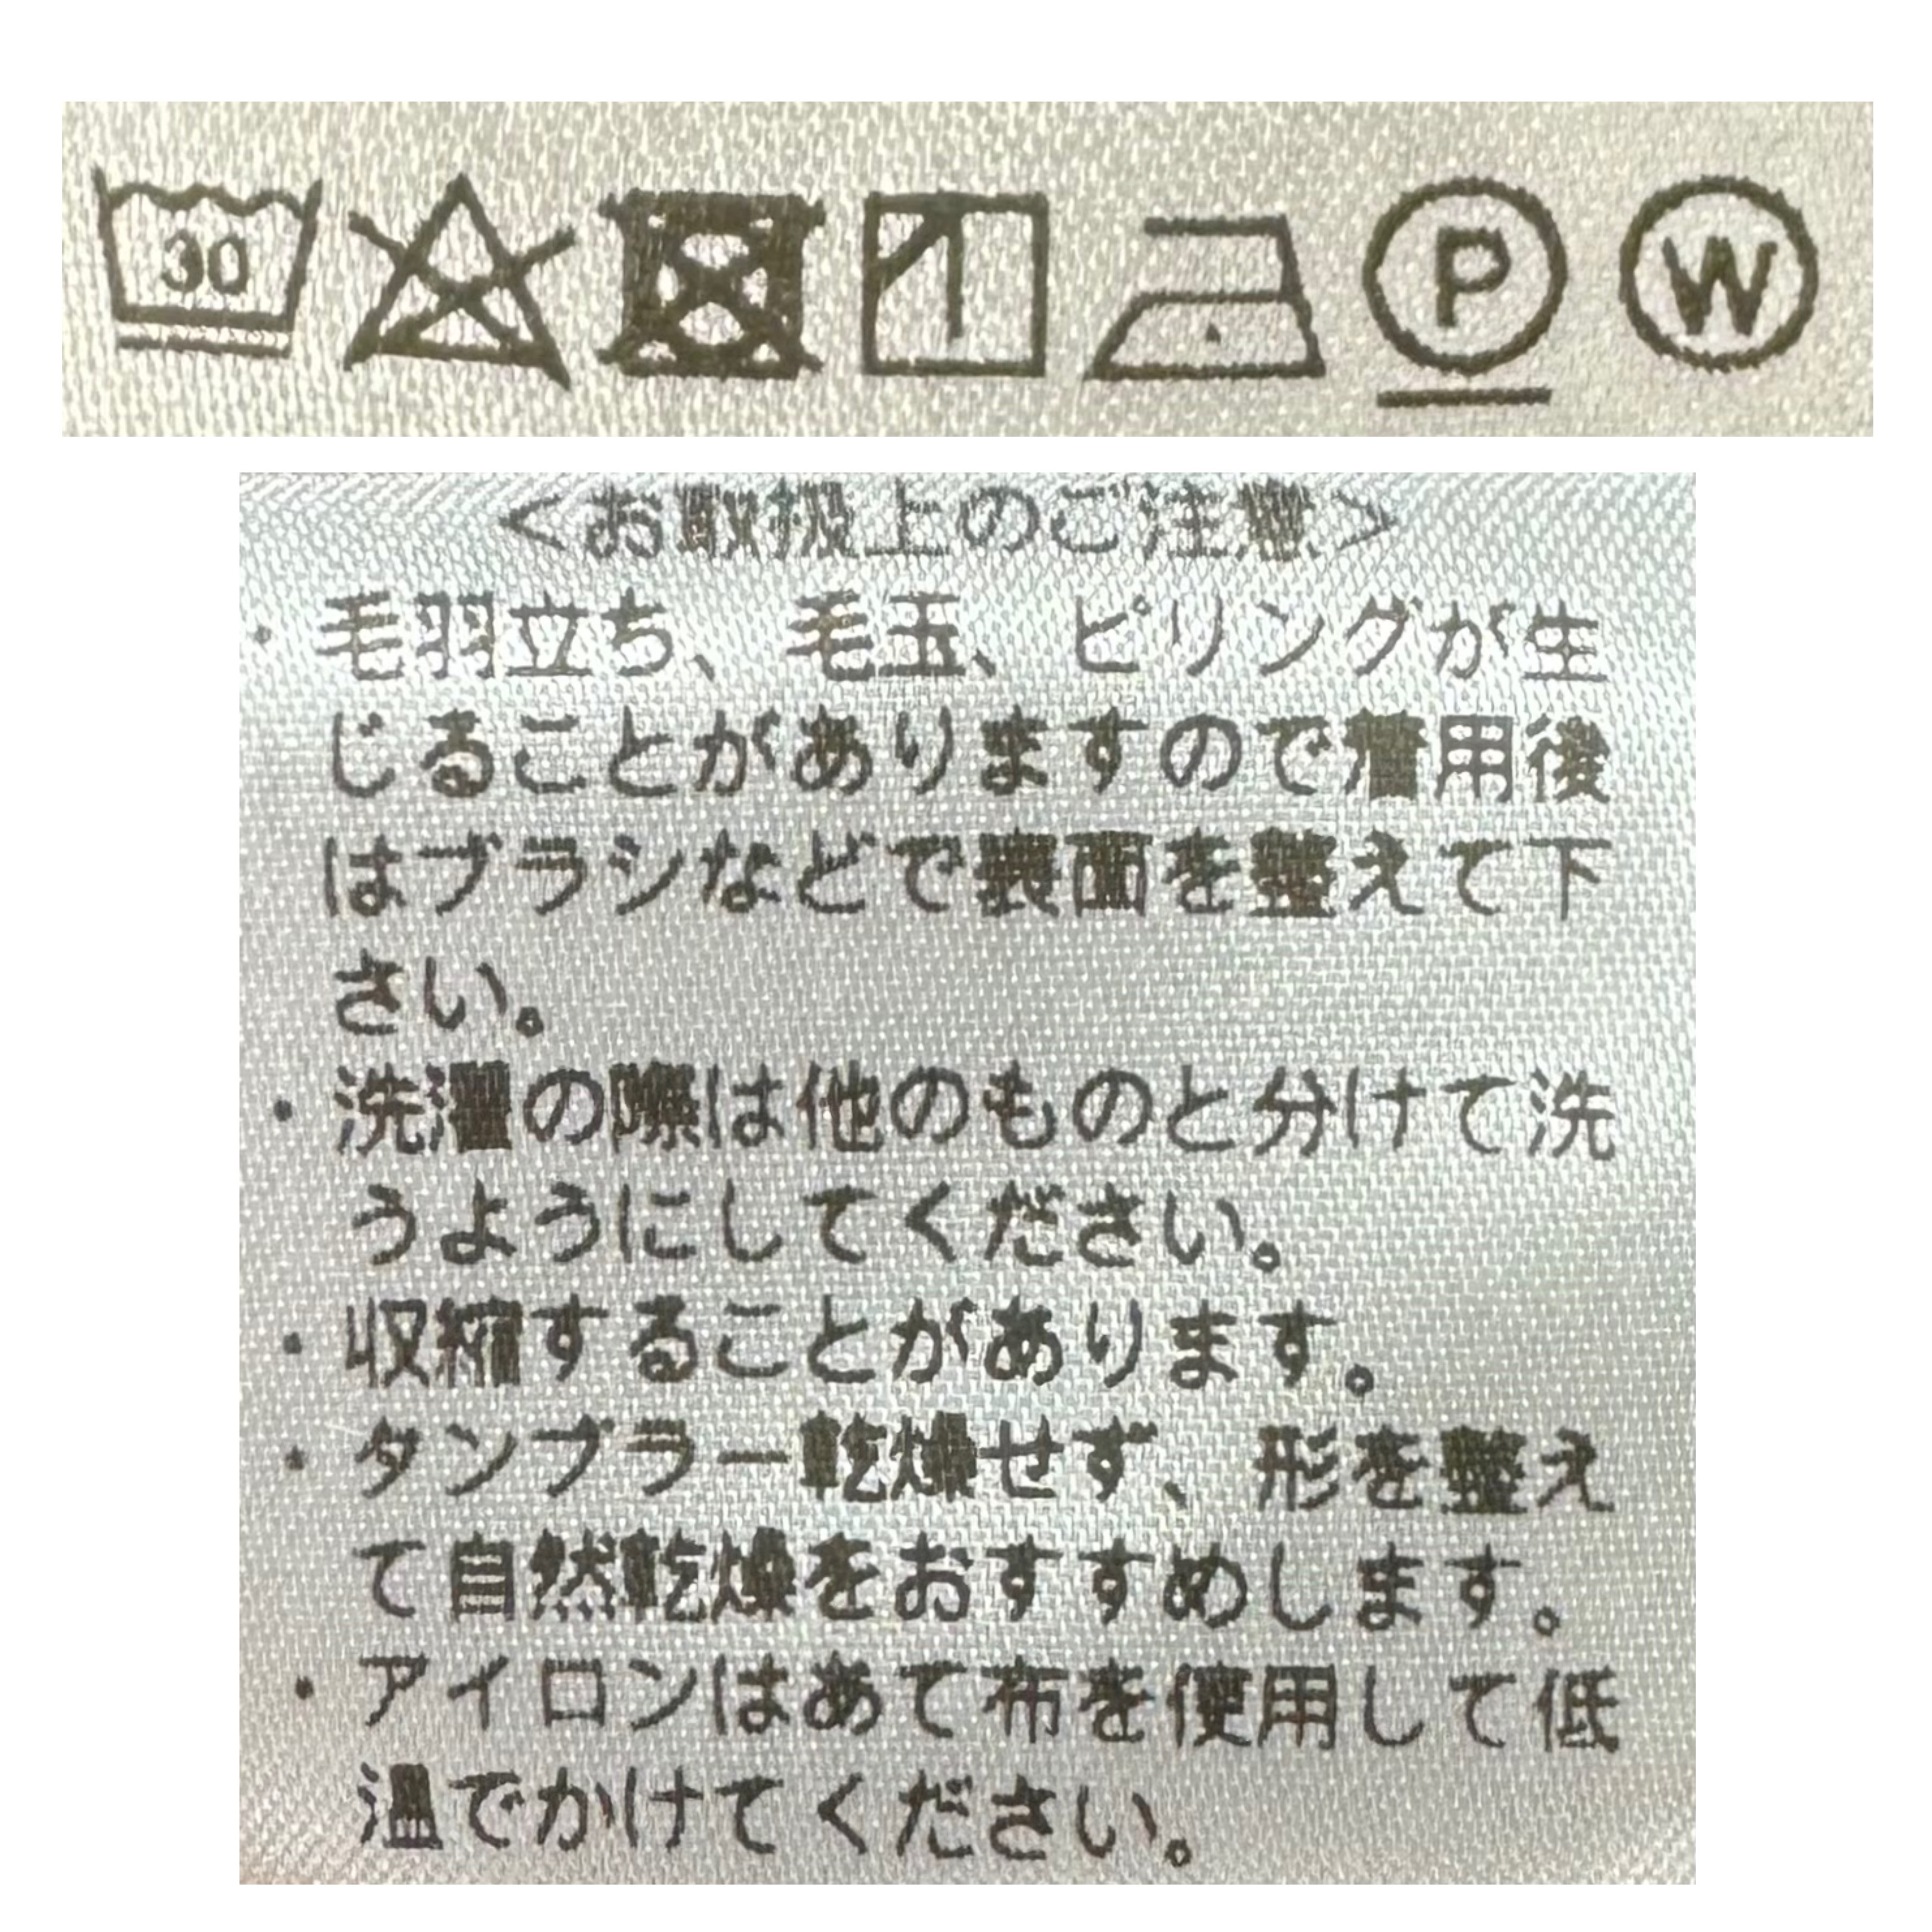 30 P W
<お取扱上のご注意>
・毛羽立ち、毛玉、ピリングが生
じることがありますので着用後
はブラシなどで表面を整えて下
さい。
・洗濯の際は他のものと分けて洗
うようにしてください。
・収縮することがあります。
・タンブラー乾燥せず、形を整え
て自然乾燥をおすすめします。
・アイロンはあて布を使用して低
温でかけてください。